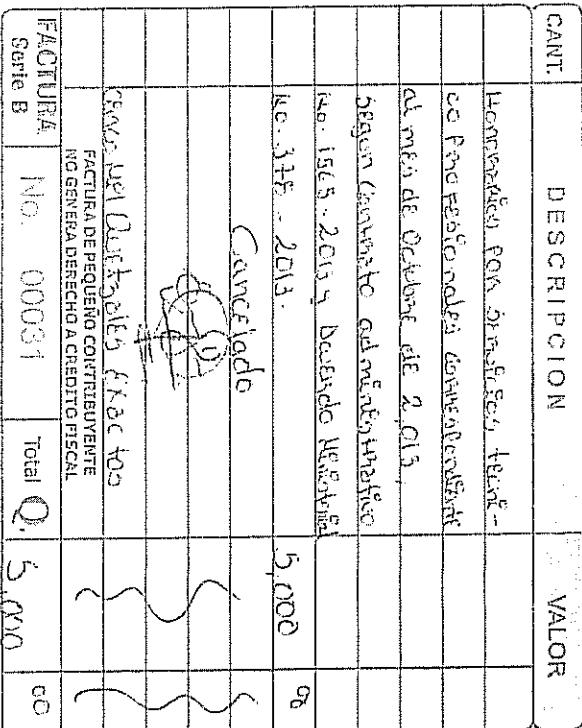 CANT. DESCRIPCION VALOR
Honorarios por servicios tecni-
co profesionales correspondiente
al mes de Octubre de 2,013
segun contrato administrativo
No. 1565-2013 y Acuerdo Ministerial
No. 378-2013. 5,000 00
Cancelado
Quetzales exactos
FACTURA DE PEQUEÑO CONTRIBUYENTE
NO GENERA DERECHO A CREDITO FISCAL
FACTURA
Serie B
No. 00031
Total Q. 5,000 00